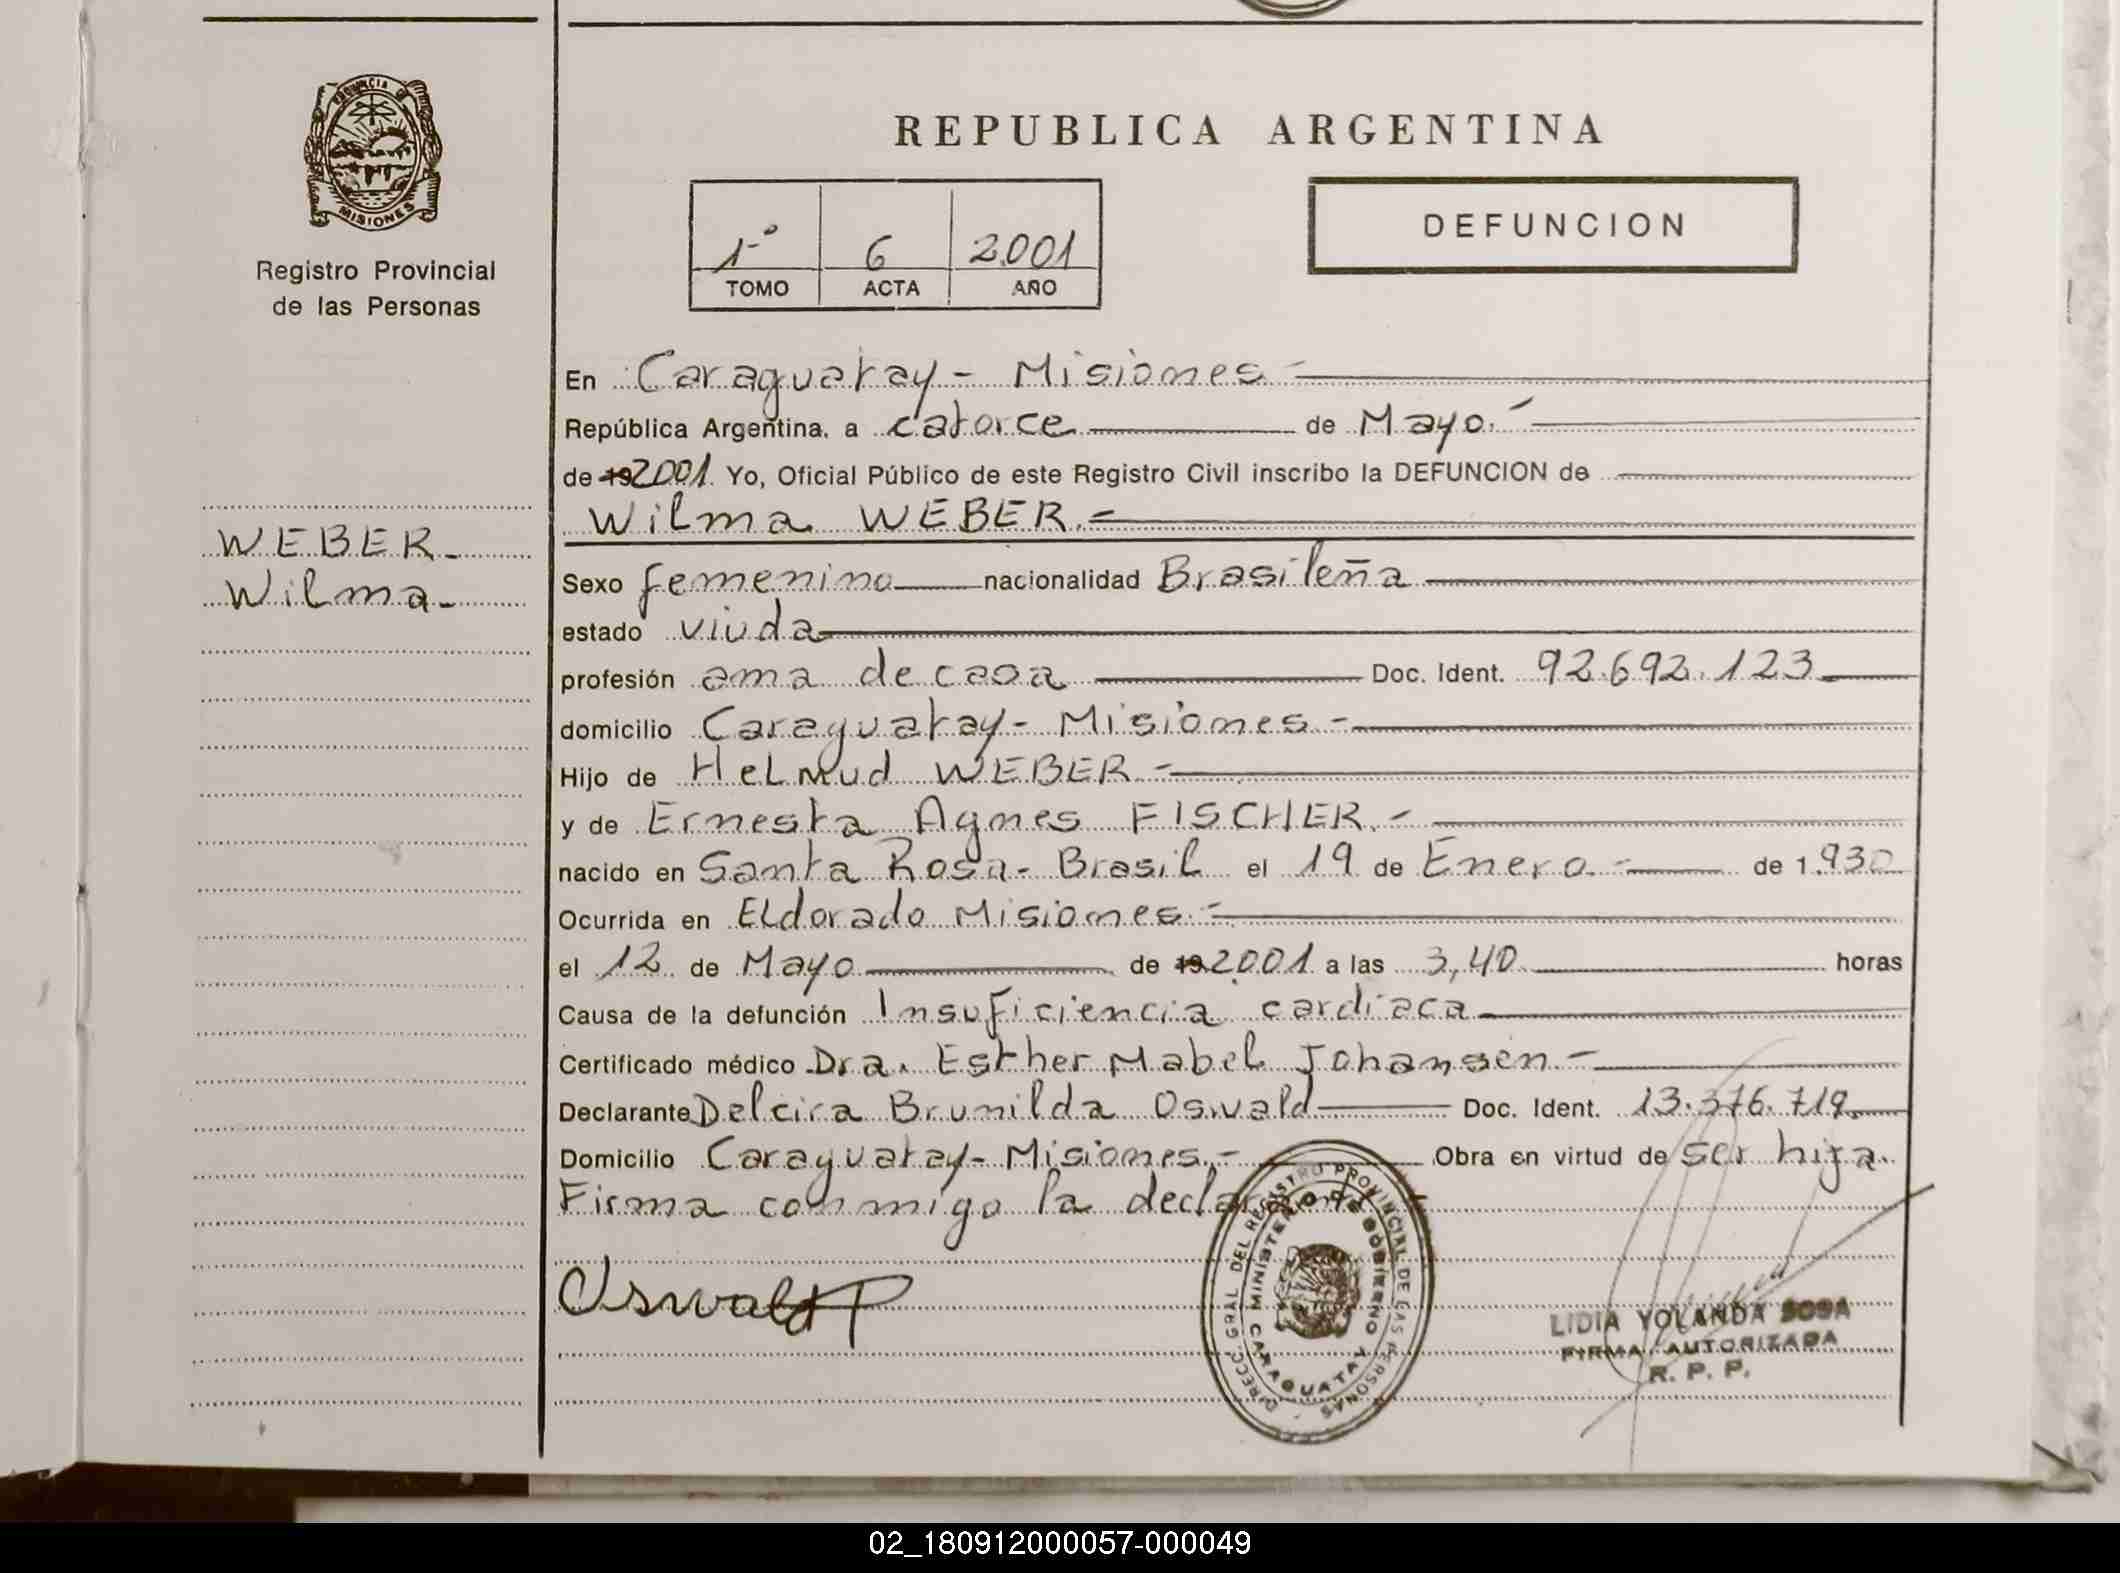 PROVINCIA DE
MISIONES
Registro Provincial
de las Personas
WEBER.-
Wilma.-
REPUBLICA ARGENTINA
1-º 6 2.001
TOMO ACTA AÑO
DEFUNCION
En Caraguatay - Misiones -
República Argentina, a catorce de Mayo.-
de 192001. Yo, Oficial Público de este Registro Civil inscribo la DEFUNCION de
Wilma WEBER.-
Sexo femenino nacionalidad Brasileña
estado viuda
profesión ama de casa Doc. Ident. 92.692.123
domicilio Caraguatay - Misiones.-
Hijo de Helmud WEBER.-
y de Ernesta Agnes FISCHER.-
nacido en Santa Rosa - Brasil el 19 de Enero.- de 1.930
Ocurrida en Eldorado Misiones.-
el 12 de Mayo de 192001 a las 3,40 horas
Causa de la defunción Insuficiencia cardíaca
Certificado médico Dra. Esther Mabel Johansen.-
Declarante Delcira Brunilda Oswald Doc. Ident. 13.376.719
Domicilio Caraguatay - Misiones.- Obra en virtud de ser hija.
Firma conmigo la declarante
Oswald
DIRECC. GRAL DEL REGISTRO PROVINCIAL DE LAS PERSONAS
MINISTERIO DE GOBIERNO
CARAGUATAY
LIDIA YOLANDA SOSA
FIRMA AUTORIZADA
R. P. P.
02_180912000057-000049